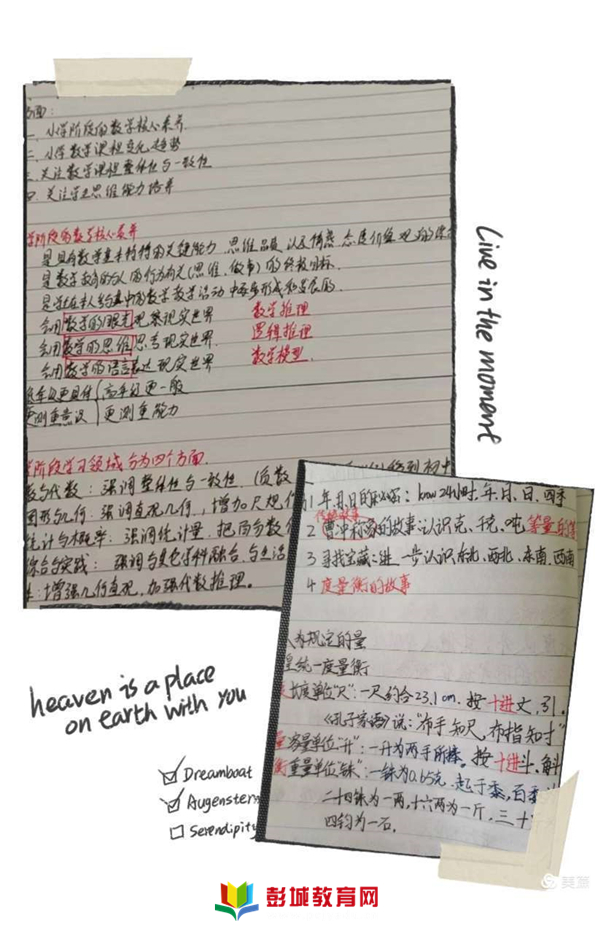 方面：
一、小学阶段的数学核心素养
二、小学数学课程变化趋势
三、关注数学课程整体性与一致性
四、关注学生思维能力培养
学阶段的数学核心素养
是具有数学基本特征的关键能力、思维品质以及情感、态度价值观的综
是数学教育的与人的行为有关(思维、做事)的终极目标.
是学生在本人参与其中的数学教学活动中逐步形成和发展的.
会用数学的眼光观察现实世界 数学推理
会用数学的思维思考现实世界. 逻辑推理
会用数学的语言表达现实世界 数学模型.
更具体 高年级更一般
更侧重意识 更侧重能力
阶段学习领域分为四个方面.
数与代数：强调整体性与一致性.
图形与几何：强调直观几何，增加尺规作
统计与概率：强调统计量，把百分数
综合与实践：强调与其它学科融合，与生活
增强几何直观，加强代数推理。
Live in the moment
1 年、月、日的秘密：know 24小时、年、月、日、四季
2 曹冲称象的故事：认识克、千克、吨 等量的
3 寻找宝藏：进一步认识东北、西北、东南、西南
4 度量衡的故事
人为规定的量
统一度量衡
长度单位"尺"：一尺约合23.1cm. 按十进丈，引。
《孔子家语》说："布手知尺，布指知寸"
容量单位"升"：一升为两手所捧，按十进斗，
衡重量单位"铢"：一铢为0.65克.起于黍，百黍
二十四铢为一两，十六两为一斤，三十
四钧为一石。
heaven is a place
on earth with you
Dreamboat
Augenstern
Serendipity
彭城教育网
美篇